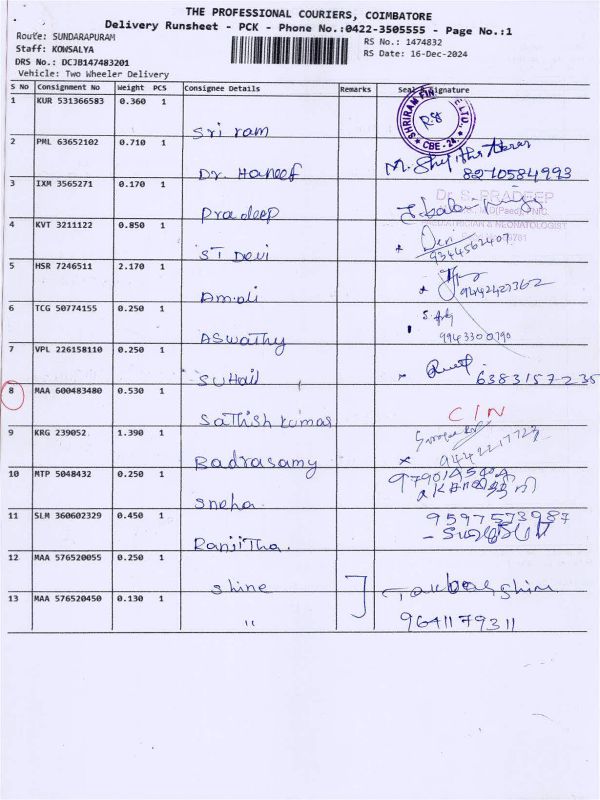 THE PROFESSIONAL COURIERS, COIMBATORE
Delivery Runsheet - PCK - Phone No.:0422-3505555 - Page No.:1
Route: SUNDARAPURAM
RS No.: 1474832
Staff: KOWSALYA
RS Date: 16-Dec-2024
DRS No.: DCJB147483201
Vehicle: Two Wheeler Delivery
S No Consignment No Weight PCS Consignee Details Remarks Seal & Signature
1 KUR 531366583 0.360 1 Sri ram SHRIRAM FIN LTD. CBE - 24
2 PML 63652102 0.710 1 Dr. Haneef 8270584993
3 IXM 3565271 0.170 1 Pradeep Dr. S. PRADEEP
4 KVT 3211122 0.850 1 ST Devi Devi 9344562407
5 HSR 7246511 2.170 1 Amali 9442427362
6 TCG 50774155 0.250 1 ASwathy 9943300790
7 VPL 226158110 0.250 1 SUHail 6383157235
8 MAA 600483480 0.530 1 Sathish kumar C/N
9 KRG 239052 1.390 1 Badrasamy 9442217728
10 MTP 5048432 0.250 1 Sneha
11 SLM 360602329 0.450 1 Ranjitha. 9597573987
12 MAA 576520055 0.250 1 Shine
13 MAA 576520450 0.130 1 " 9641179311